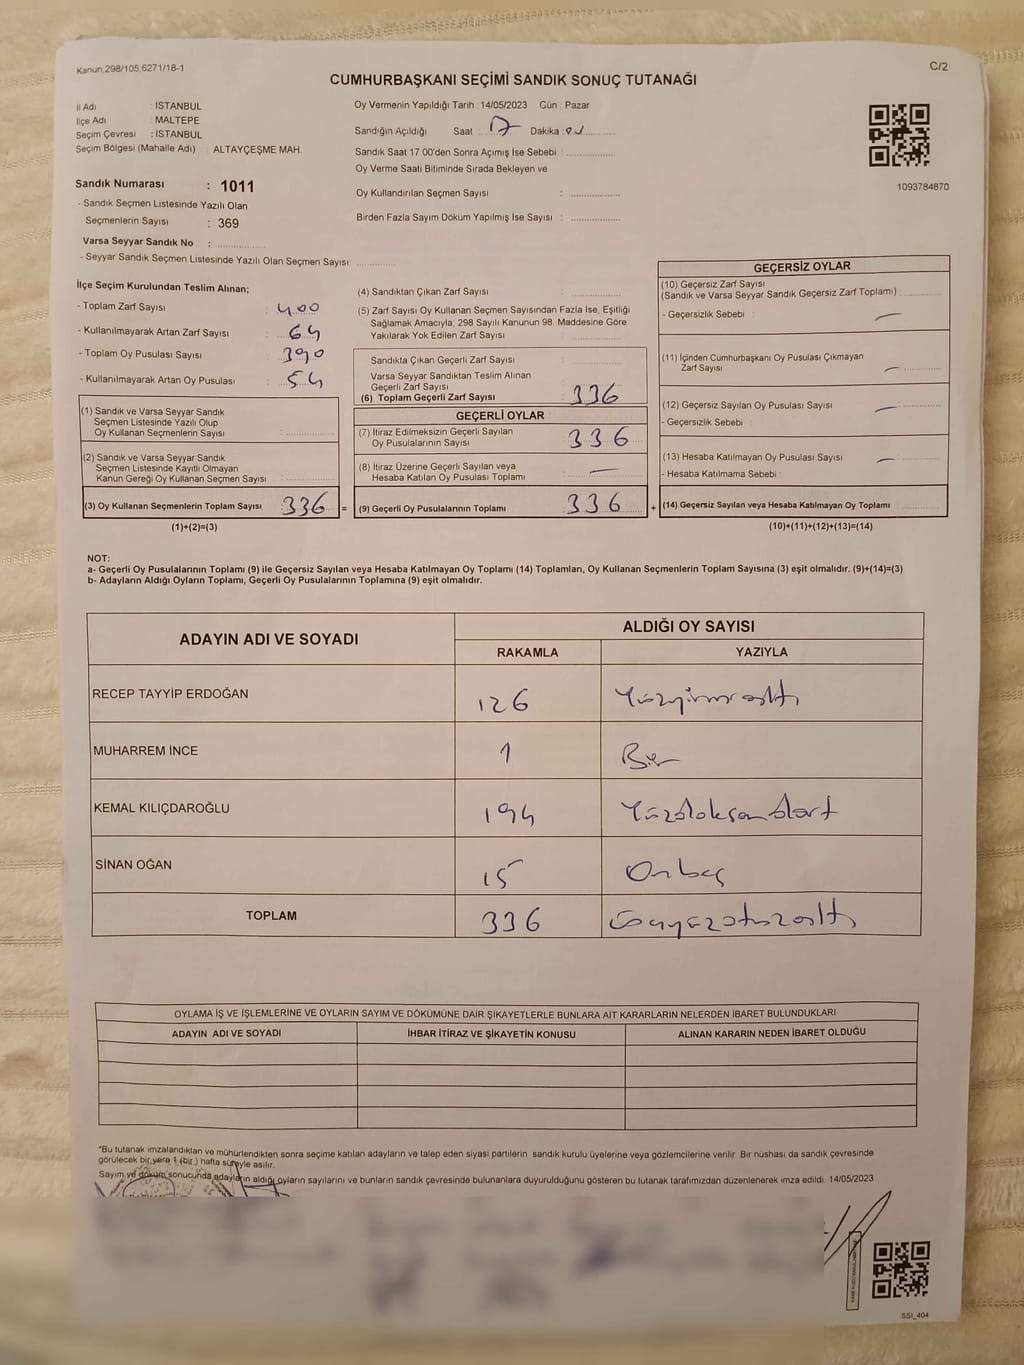 Kanun,298/105,6271/18-1
C/2
CUMHURBAŞKANI SEÇİMİ SANDIK SONUÇ TUTANAĞI
İl Adı : İSTANBUL
İlçe Adı : MALTEPE
Seçim Çevresi : İSTANBUL
Seçim Bölgesi (Mahalle Adı) : ALTAYÇEŞME MAH.
Oy Vermenin Yapıldığı Tarih : 14/05/2023 Gün : Pazar
Sandığın Açıldığı Saat : 17 Dakika :
Sandık Saat 17.00'den Sonra Açımış İse Sebebi :
Oy Verme Saati Bitiminde Sırada Bekleyen ve
Oy Kullandırılan Seçmen Sayısı :
Birden Fazla Sayım Döküm Yapılmış İse Sayısı :
1093784870
Sandık Numarası : 1011
- Sandık Seçmen Listesinde Yazılı Olan
Seçmenlerin Sayısı : 369
Varsa Seyyar Sandık No :
- Seyyar Sandık Seçmen Listesinde Yazılı Olan Seçmen Sayısı:
İlçe Seçim Kurulundan Teslim Alınan;
- Toplam Zarf Sayısı : 400
- Kullanılmayarak Artan Zarf Sayısı : 64
- Toplam Oy Pusulası Sayısı : 390
- Kullanılmayarak Artan Oy Pusulası : 54
(1) Sandık ve Varsa Seyyar Sandık
Seçmen Listesinde Yazılı Olup
Oy Kullanan Seçmenlerin Sayısı :
(2) Sandık ve Varsa Seyyar Sandık
Seçmen Listesinde Kayıtlı Olmayan
Kanun Gereği Oy Kullanan Seçmen Sayısı :
(3) Oy Kullanan Seçmenlerin Toplam Sayısı : 336 =
(1)+(2)=(3)
(4) Sandıktan Çıkan Zarf Sayısı :
(5) Zarf Sayısı Oy Kullanan Seçmen Sayısından Fazla İse, Eşitliği
Sağlamak Amacıyla; 298 Sayılı Kanunun 98. Maddesine Göre
Yakılarak Yok Edilen Zarf Sayısı :
Sandıkta Çıkan Geçerli Zarf Sayısı :
Varsa Seyyar Sandıktan Teslim Alınan
Geçerli Zarf Sayısı :
(6) Toplam Geçerli Zarf Sayısı : 336
GEÇERLİ OYLAR
(7) İtiraz Edilmeksizin Geçerli Sayılan
Oy Pusulalarının Sayısı : 336
(8) İtiraz Üzerine Geçerli Sayılan veya
Hesaba Katılan Oy Pusulası Toplamı : —
(9) Geçerli Oy Pusulalarının Toplamı : 336 +
GEÇERSİZ OYLAR
(10) Geçersiz Zarf Sayısı
(Sandık ve Varsa Seyyar Sandık Geçersiz Zarf Toplamı) :
- Geçersizlik Sebebi : —
(11) İçinden Cumhurbaşkanı Oy Pusulası Çıkmayan
Zarf Sayısı : —
(12) Geçersiz Sayılan Oy Pusulası Sayısı : —
- Geçersizlik Sebebi :
(13) Hesaba Katılmayan Oy Pusulası Sayısı : —
- Hesaba Katılmama Sebebi :
(14) Geçersiz Sayılan veya Hesaba Katılmayan Oy Toplamı :
(10)+(11)+(12)+(13)=(14)
NOT:
a- Geçerli Oy Pusulalarının Toplamı (9) ile Geçersiz Sayılan veya Hesaba Katılmayan Oy Toplamı (14) Toplamları, Oy Kullanan Seçmenlerin Toplam Sayısına (3) eşit olmalıdır. (9)+(14)=(3)
b- Adayların Aldığı Oyların Toplamı, Geçerli Oy Pusulalarının Toplamına (9) eşit olmalıdır.
ADAYIN ADI VE SOYADI
ALDIĞI OY SAYISI
RAKAMLA YAZIYLA
RECEP TAYYİP ERDOĞAN 126 Yüzyirmialtı
MUHARREM İNCE 1 Bir
KEMAL KILIÇDAROĞLU 194 Yüzdoksandört
SİNAN OĞAN 15 Onbeş
TOPLAM 336 Üçyüzotuzaltı
OYLAMA İŞ VE İŞLEMLERİNE VE OYLARIN SAYIM VE DÖKÜMÜNE DAİR ŞİKAYETLERLE BUNLARA AİT KARARLARIN NELERDEN İBARET BULUNDUKLARI
ADAYIN ADI VE SOYADI İHBAR İTİRAZ VE ŞİKAYETİN KONUSU ALINAN KARARIN NEDEN İBARET OLDUĞU
*Bu tutanak imzalandıktan ve mühürlendikten sonra seçime katılan adayların ve talep eden siyasi partilerin sandık kurulu üyelerine veya gözlemcilerine verilir. Bir nüshası da sandık çevresinde
görülecek bir yere 1 (bir) hafta süreyle asılır.
Sayım ve döküm sonucunda adayların aldığı oyların sayılarını ve bunların sandık çevresinde bulunanlara duyurulduğunu gösteren bu tutanak tarafımızdan düzenlenerek imza edildi. 14/05/2023
SSI_404